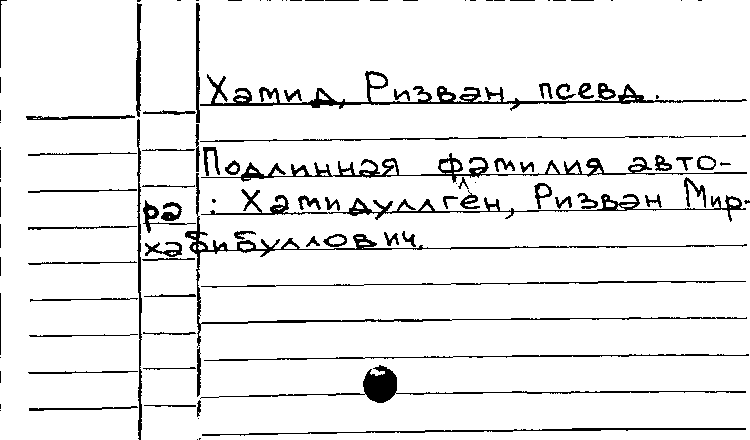 Хамид, Ризван, псевд.
Подлинная фамилия авто-
ра : Хамидуллген, Ризван Мир-
хабибуллович.